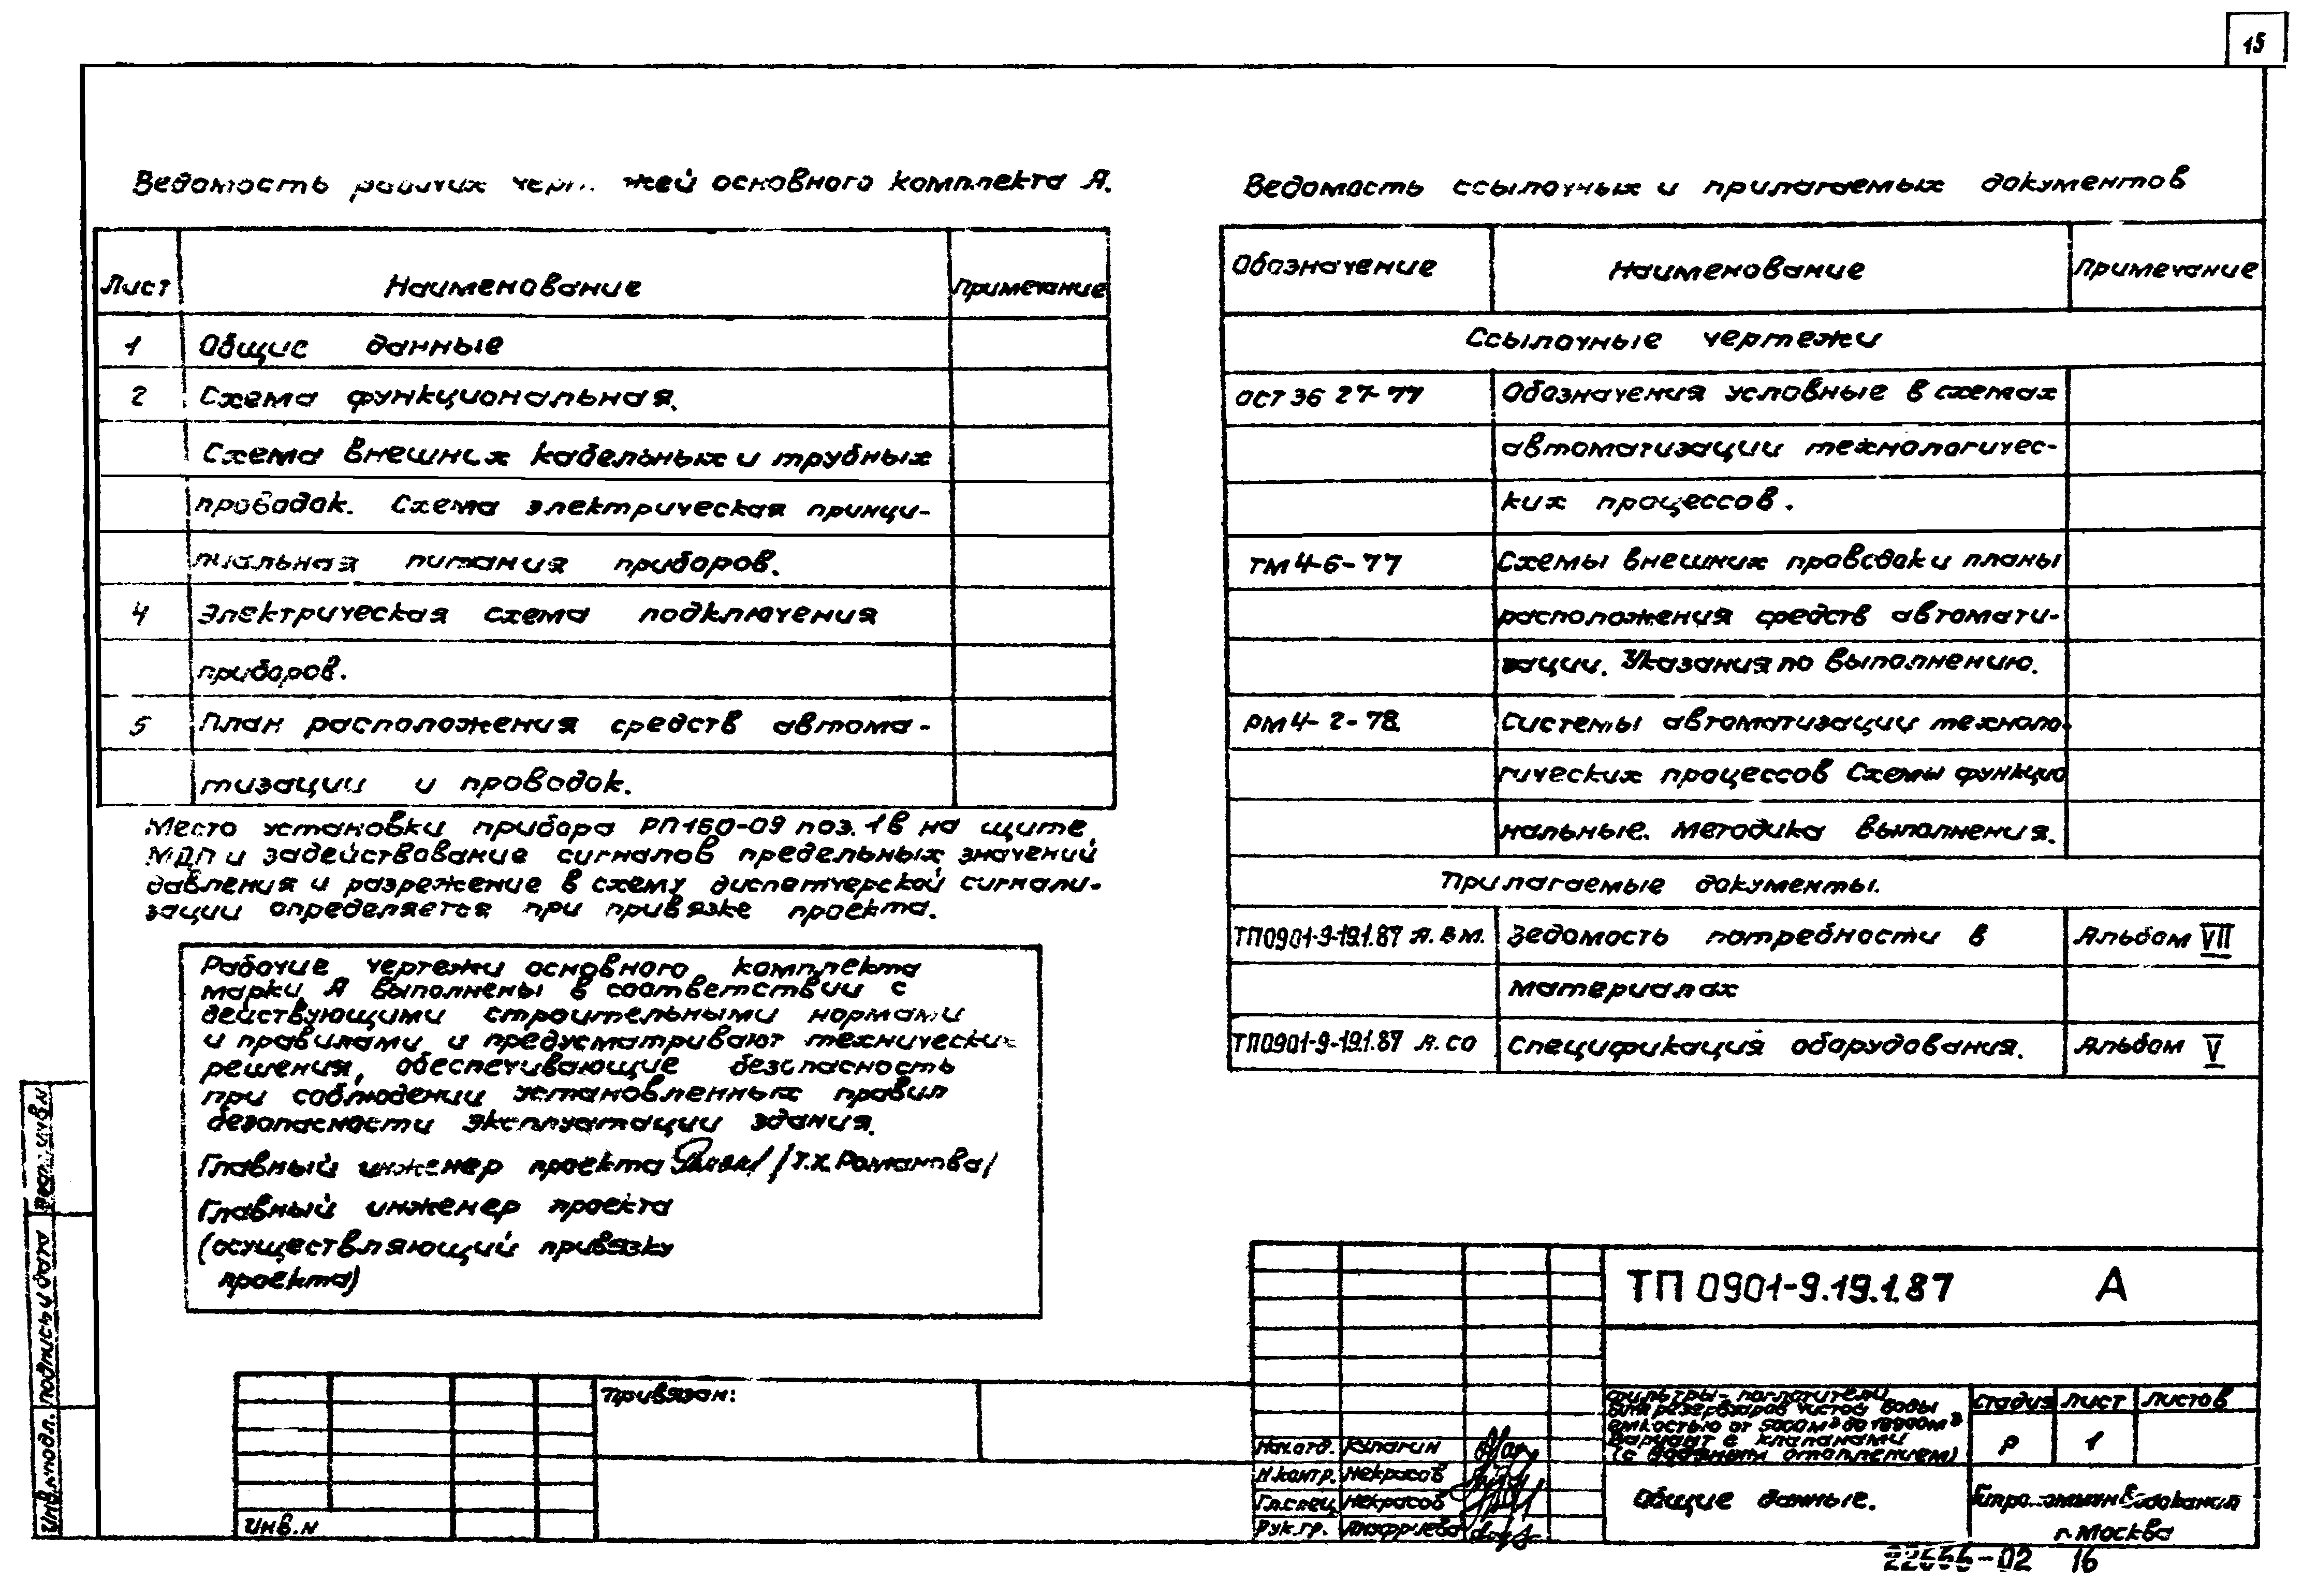 15
Ведомость рабочих чертежей основного комплекта А.
Лист Наименование Примечание
1 Общие данные
2 Схема функциональная.
Схема внешних кабельных и трубных
проводок. Схема электрическая принци-
пиальная питания приборов.
4 Электрическая схема подключения
приборов.
5 План расположения средств автома-
тизации и проводок.
Место установки прибора РП160-09 поз. 1в на щите
МДП и задействование сигналов предельных значений
давления и разрежение в схему диспетчерской сигнали-
зации определяется при привязке проекта.
Рабочие чертежи основного комплекта
марки А выполнены в соответствии с
действующими строительными нормами
и правилами и предусматривают технические
решения, обеспечивающие безопасность
при соблюдении установленных правил
безопасности эксплуатации здания.
Главный инженер проекта /Т.Х.Романова/
Главный инженер проекта
(осуществляющий привязку
проекта)
Ведомость ссылочных и прилагаемых документов
Обозначение Наименование Примечание
Ссылочные чертежи
ОСТ 36 27-77 Обозначения условные в схемах
автоматизации технологичес-
ких процессов.
ТМ4-6-77 Схемы внешних проводок и планы
расположения средств автомати-
зации. Указания по выполнению.
РМ4-2-78 Системы автоматизации техноло-
гических процессов Схемы функцио
нальные. Методика выполнения.
Прилагаемые документы.
ТП0901-9-19.1.87 А.ВМ. Ведомость потребности в Альбом VII
материалах
ТП0901-9-19.1.87 А.СО Спецификация оборудования. Альбом V
Взам. инв.N
Подпись и дата
Инв.N подл.
Привязан:
Инв.N
ТП 0901-9.19.1.87 А
Фильтры-поглотители
для резервуаров чистой воды
емкостью от 5000м³ до
Вариант с клапанами
(с водяным отоплением)
Стадия Лист Листов
Р 1
Нач.отд. Кулагин
Н.контр. Некрасов
Гл.спец Некрасов
Рук.гр. Ануфриева
Общие данные.
г. Москва
-02 16